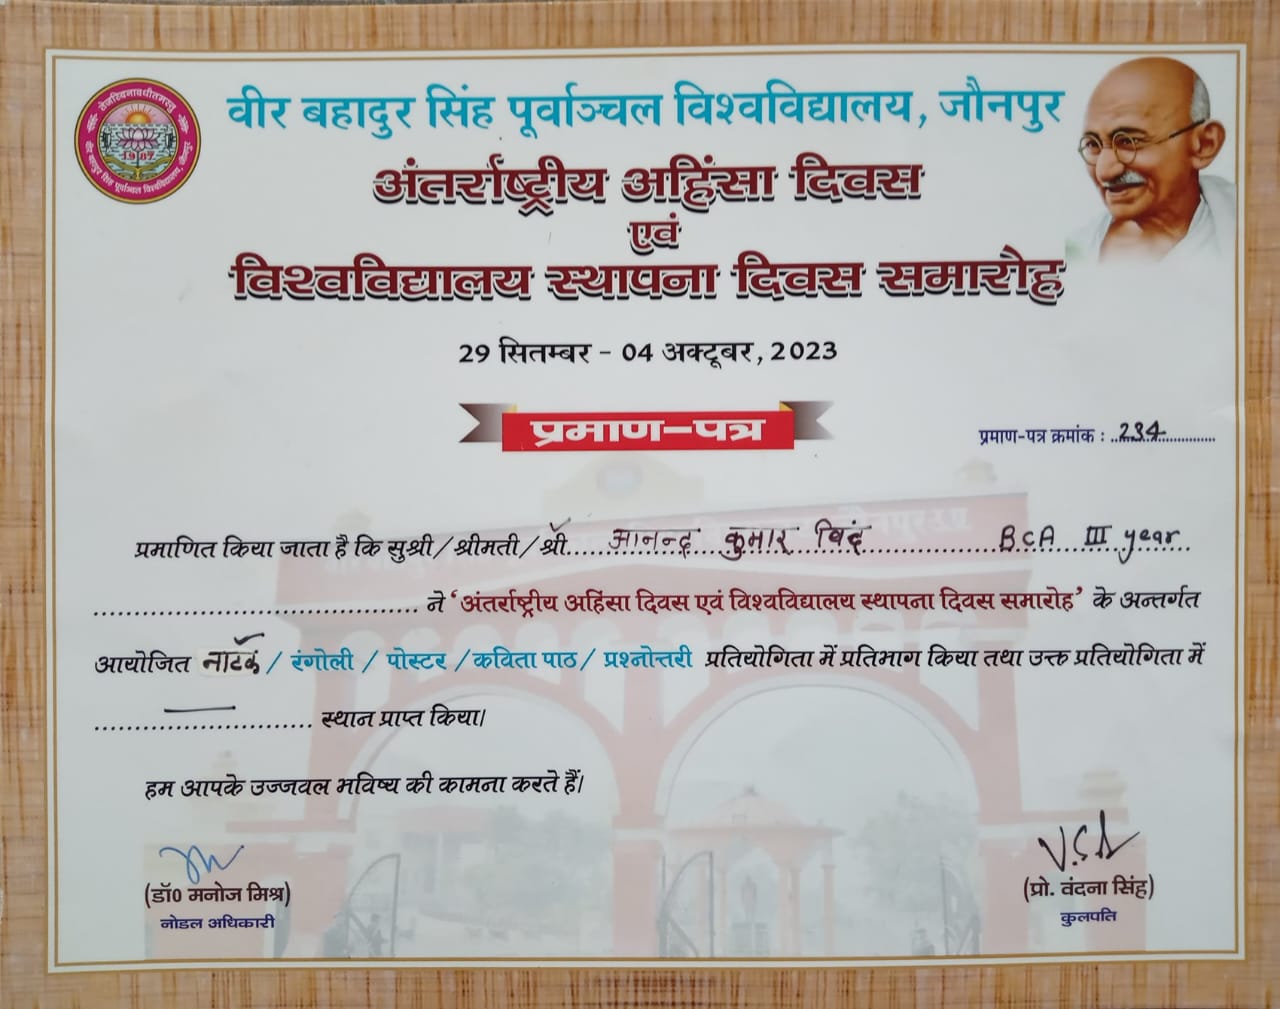 वीर बहादुर सिंह पूर्वाञ्चल विश्वविद्यालय, जौनपुर
तेजस्विनावधीतमस्तु
1987
वीर बहादुर सिंह पूर्वाञ्चल विश्वविद्यालय, जौनपुर
अंतर्राष्ट्रीय अहिंसा दिवस
एवं
विश्वविद्यालय स्थापना दिवस समारोह
29 सितम्बर - 04 अक्टूबर, 2023
प्रमाण-पत्र
प्रमाण-पत्र क्रमांक : ..234..............
प्रमाणित किया जाता है कि सुश्री/श्रीमती/श्री.....आनन्द कुमार विंद............... BCA III year..
....................................... ने 'अंतर्राष्ट्रीय अहिंसा दिवस एवं विश्वविद्यालय स्थापना दिवस समारोह' के अन्तर्गत
आयोजित नाटक / रंगोली / पोस्टर / कविता पाठ / प्रश्नोत्तरी प्रतियोगिता में प्रतिभाग किया तथा उक्त प्रतियोगिता में
.......................... स्थान प्राप्त किया।
हम आपके उज्जवल भविष्य की कामना करते हैं।
(डॉ0 मनोज मिश्र)
नोडल अधिकारी
V.S.
(प्रो. वंदना सिंह)
कुलपति